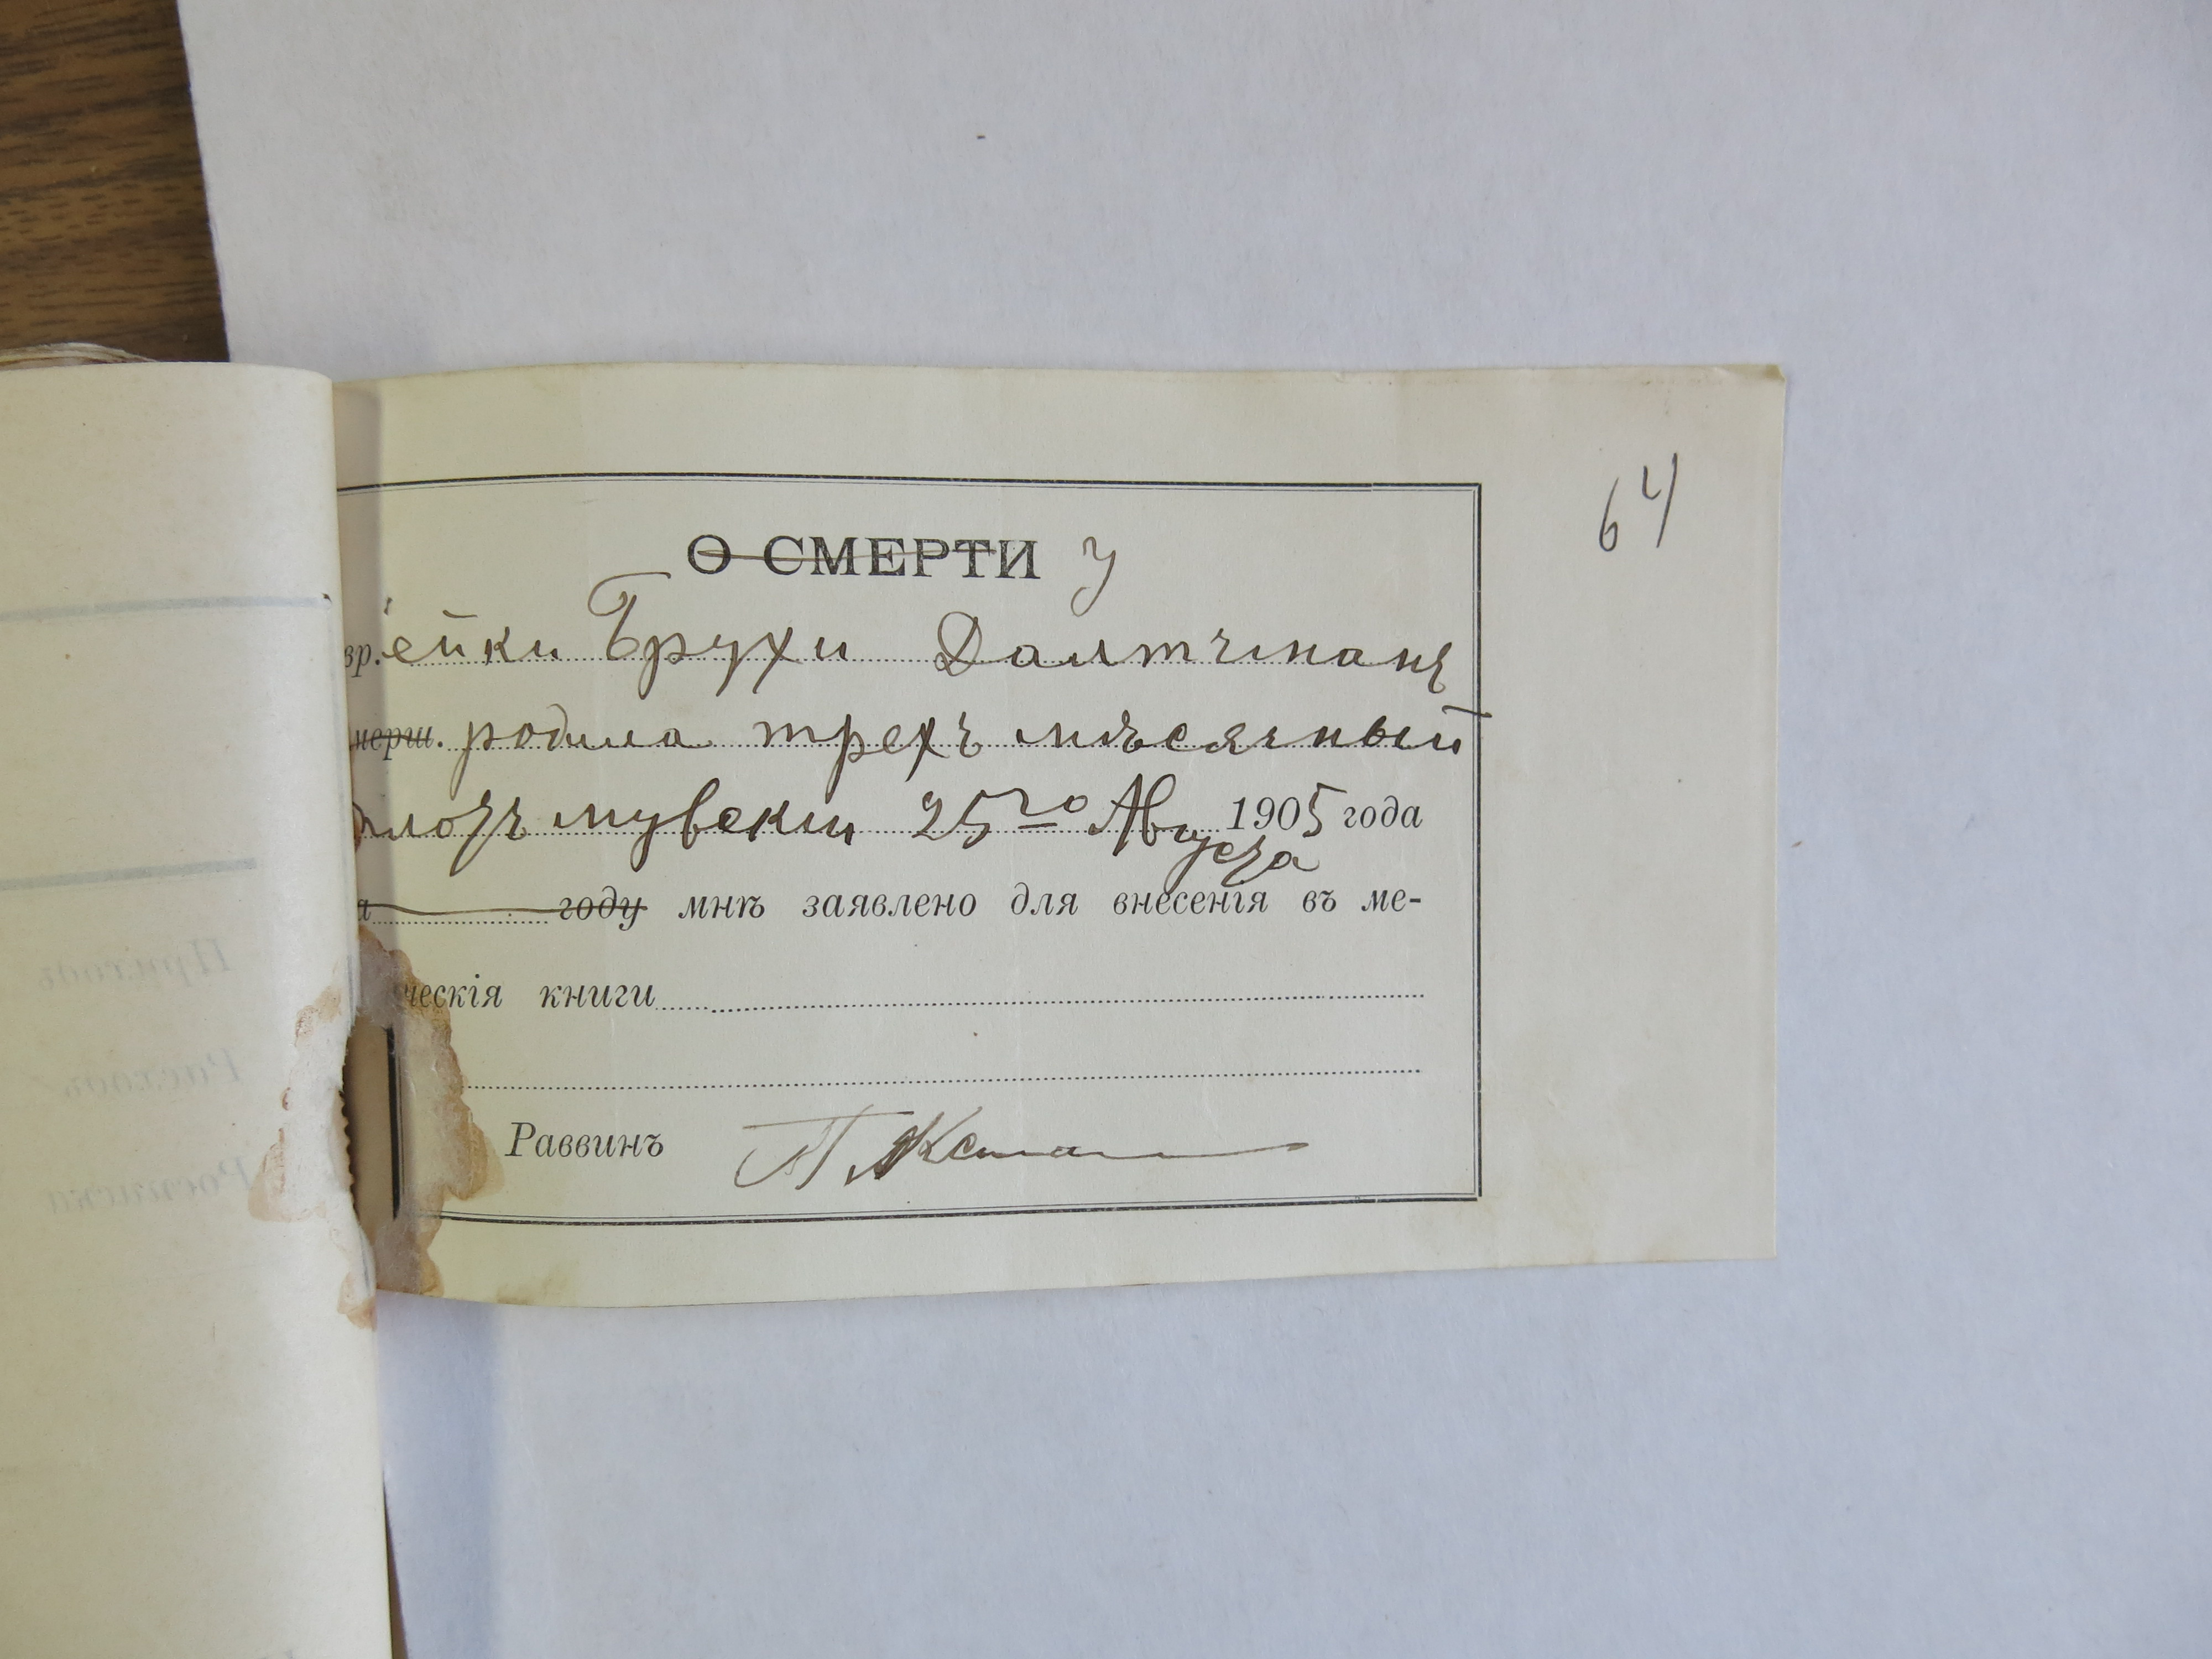 64
О СМЕРТИ У
вр.ейки Брухи Далтчманъ
мерш. родила трехъ мѣсячный
плодъ мувскии 25го Августа 1905 года
а году мнѣ заявлено для внесенія въ ме-
ческія книги
Раввинъ